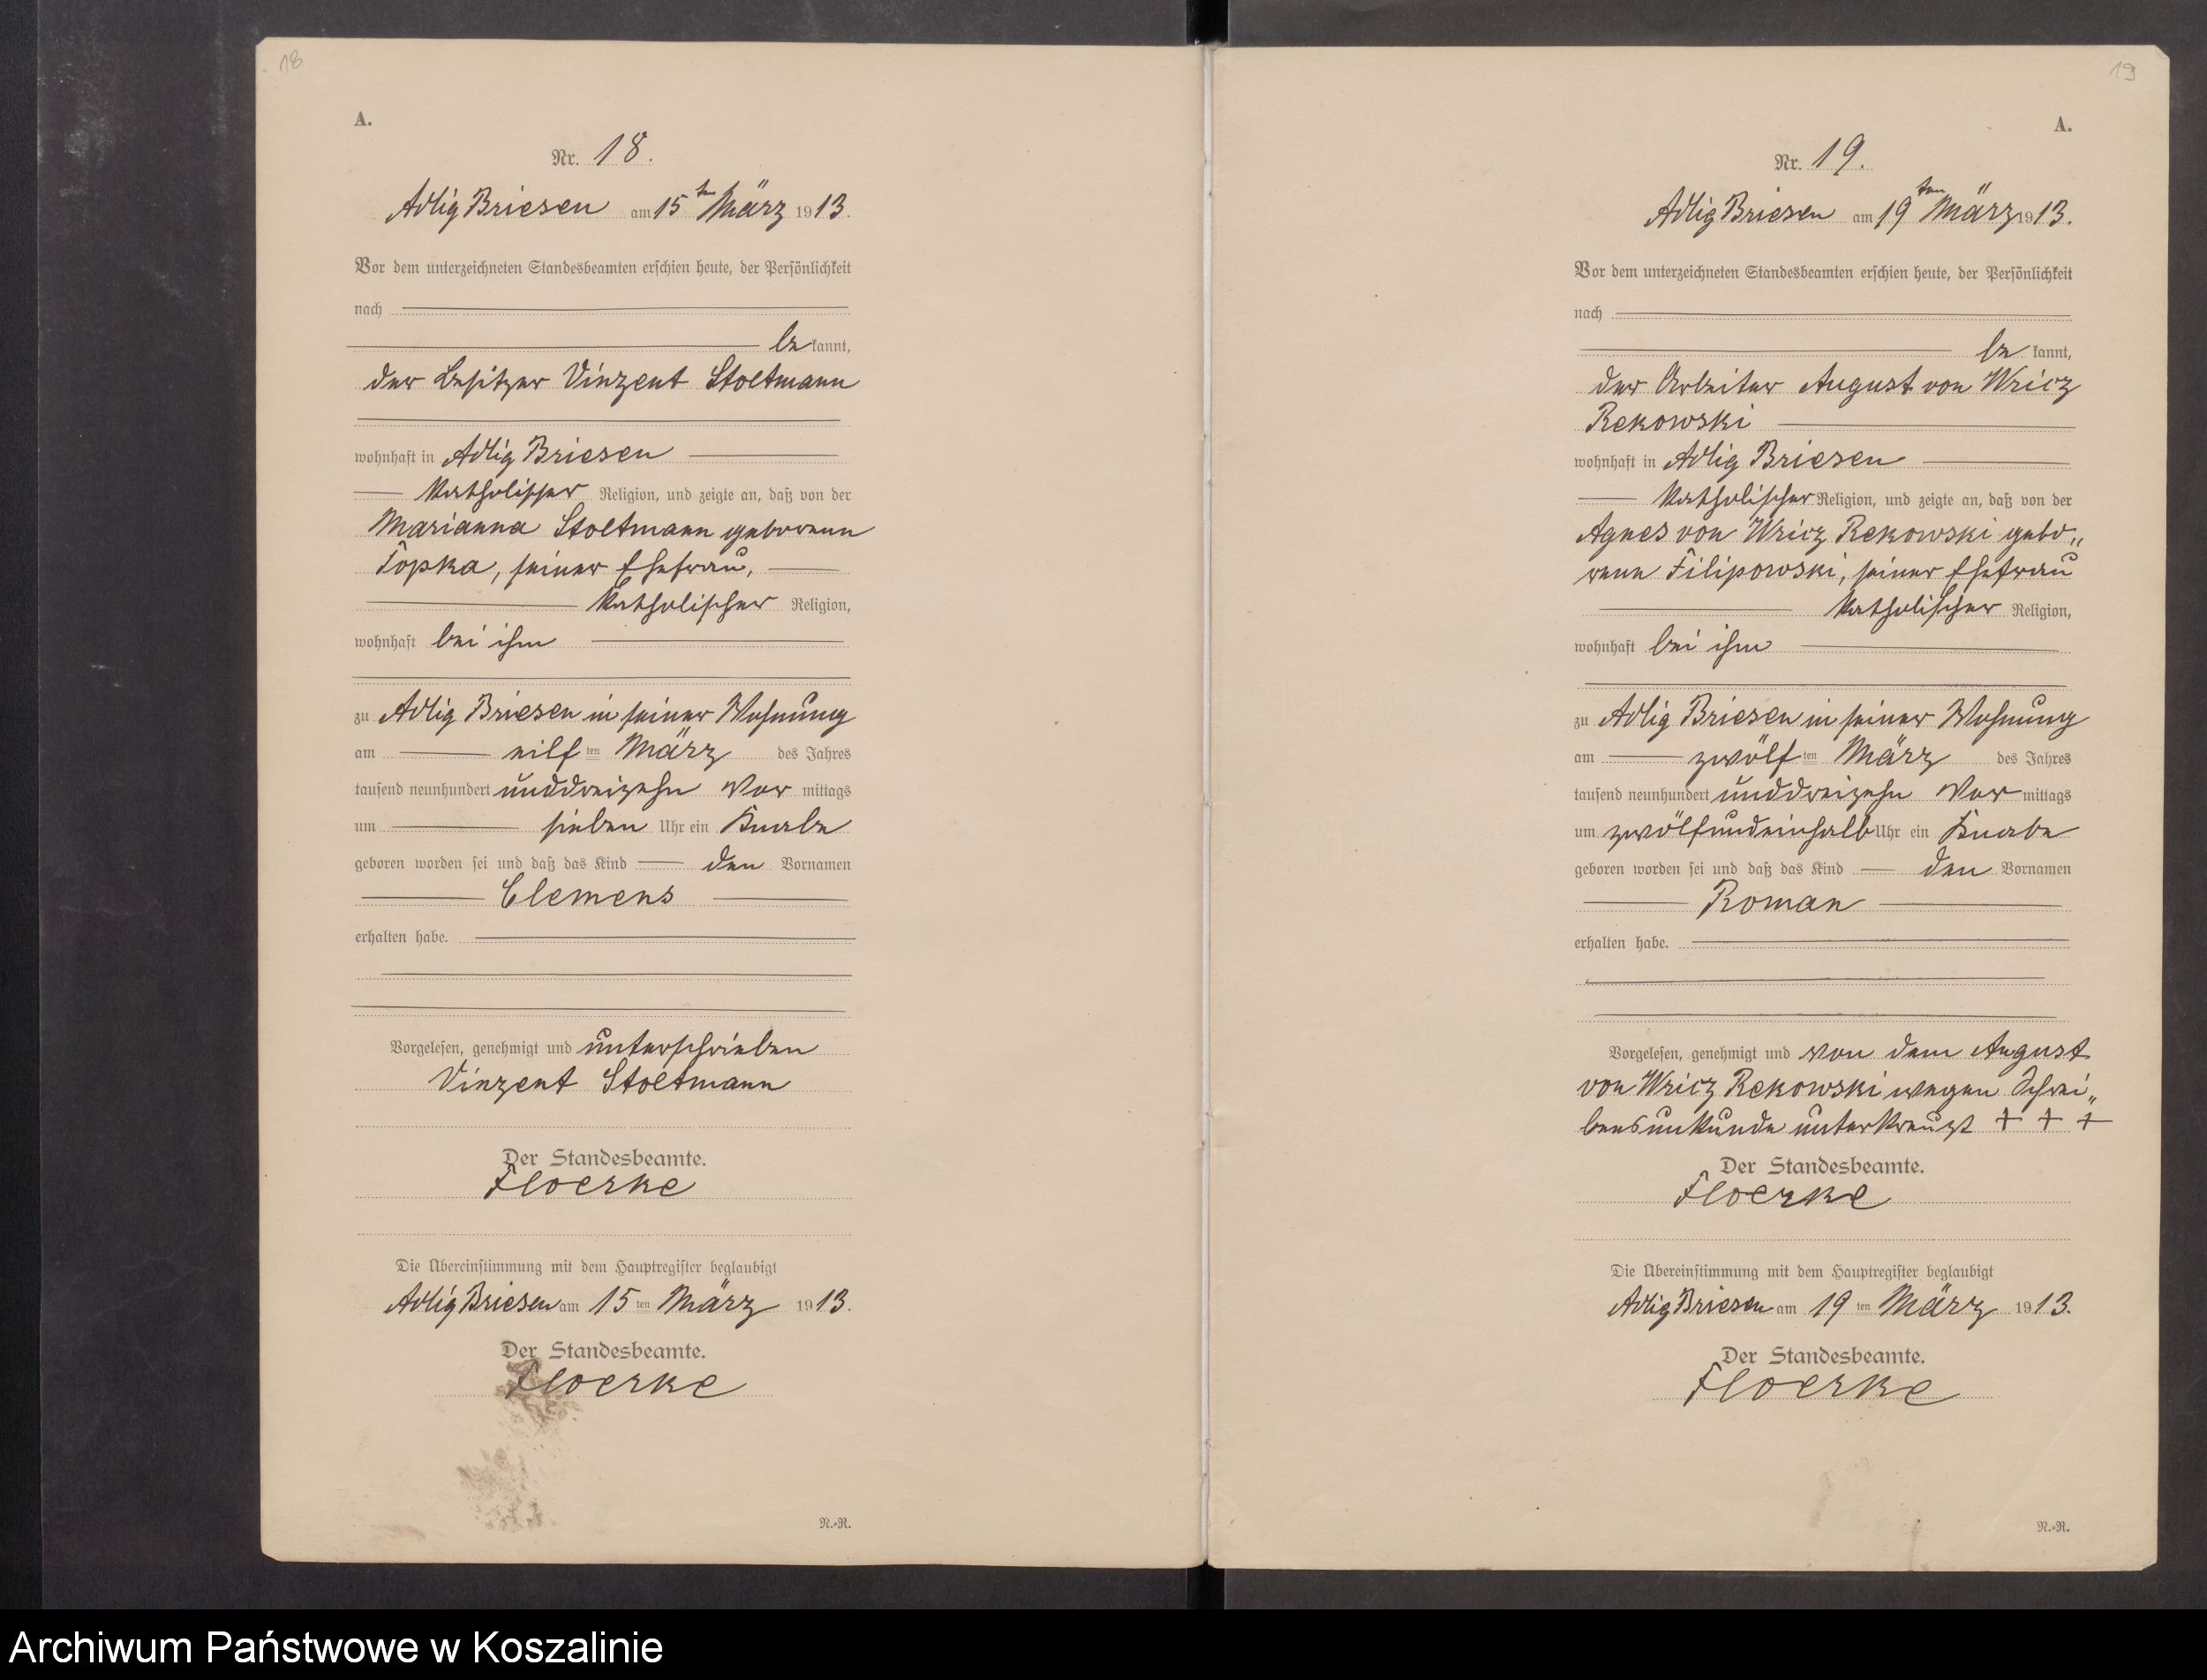 18
A.
Nr. 18.
Adlig Briesen am 15ten März 1913.
Vor dem unterzeichneten Standesbeamten erschien heute, der Persönlichkeit
nach
be kannt,
der Besitzer Vinzent Stoltmann
wohnhaft in Adlig Briesen
katholischer Religion, und zeigte an, daß von der
Marianna Stoltmann geborenen
Topka, seiner Ehefrau,
katholischer Religion,
wohnhaft bei ihm
zu Adlig Briesen in seiner Wohnung
am eilf ten März des Jahres
tausend neunhundert unddreizehn Vor mittags
um sieben Uhr ein Knabe
geboren worden sei und daß das Kind den Vornamen
Clemens
erhalten habe.
Vorgelesen, genehmigt und unterschrieben
Vinzent Stoltmann
Der Standesbeamte.
Floerke
Die Übereinstimmung mit dem Hauptregister beglaubigt
Adlig Briesen am 15 ten März 1913.
Der Standesbeamte.
Floerke
N.-R.
19
A.
Nr. 19.
Adlig Briesen am 19ten März 1913.
Vor dem unterzeichneten Standesbeamten erschien heute, der Persönlichkeit
nach
be kannt,
der Arbeiter August von Wricz
Rekowski
wohnhaft in Adlig Briesen
katholischer Religion, und zeigte an, daß von der
Agnes von Wricz Rekowski gebo„
rene Filipowski, seiner Ehefrau
katholischer Religion,
wohnhaft bei ihm
zu Adlig Briesen in seiner Wohnung
am zwölf ten März des Jahres
tausend neunhundert unddreizehn Vor mittags
um zwölfundeinhalb Uhr ein Knabe
geboren worden sei und daß das Kind den Vornamen
Roman
erhalten habe.
Vorgelesen, genehmigt und von dem August
von Wricz Rekowski wegen Schrei„
bensunkunde unterkreuzt + + +
Der Standesbeamte.
Floerke
Die Übereinstimmung mit dem Hauptregister beglaubigt
Adlig Briesen am 19 ten März 1913.
Der Standesbeamte.
Floerke
N.-R.
Archiwum Państwowe w Koszalinie